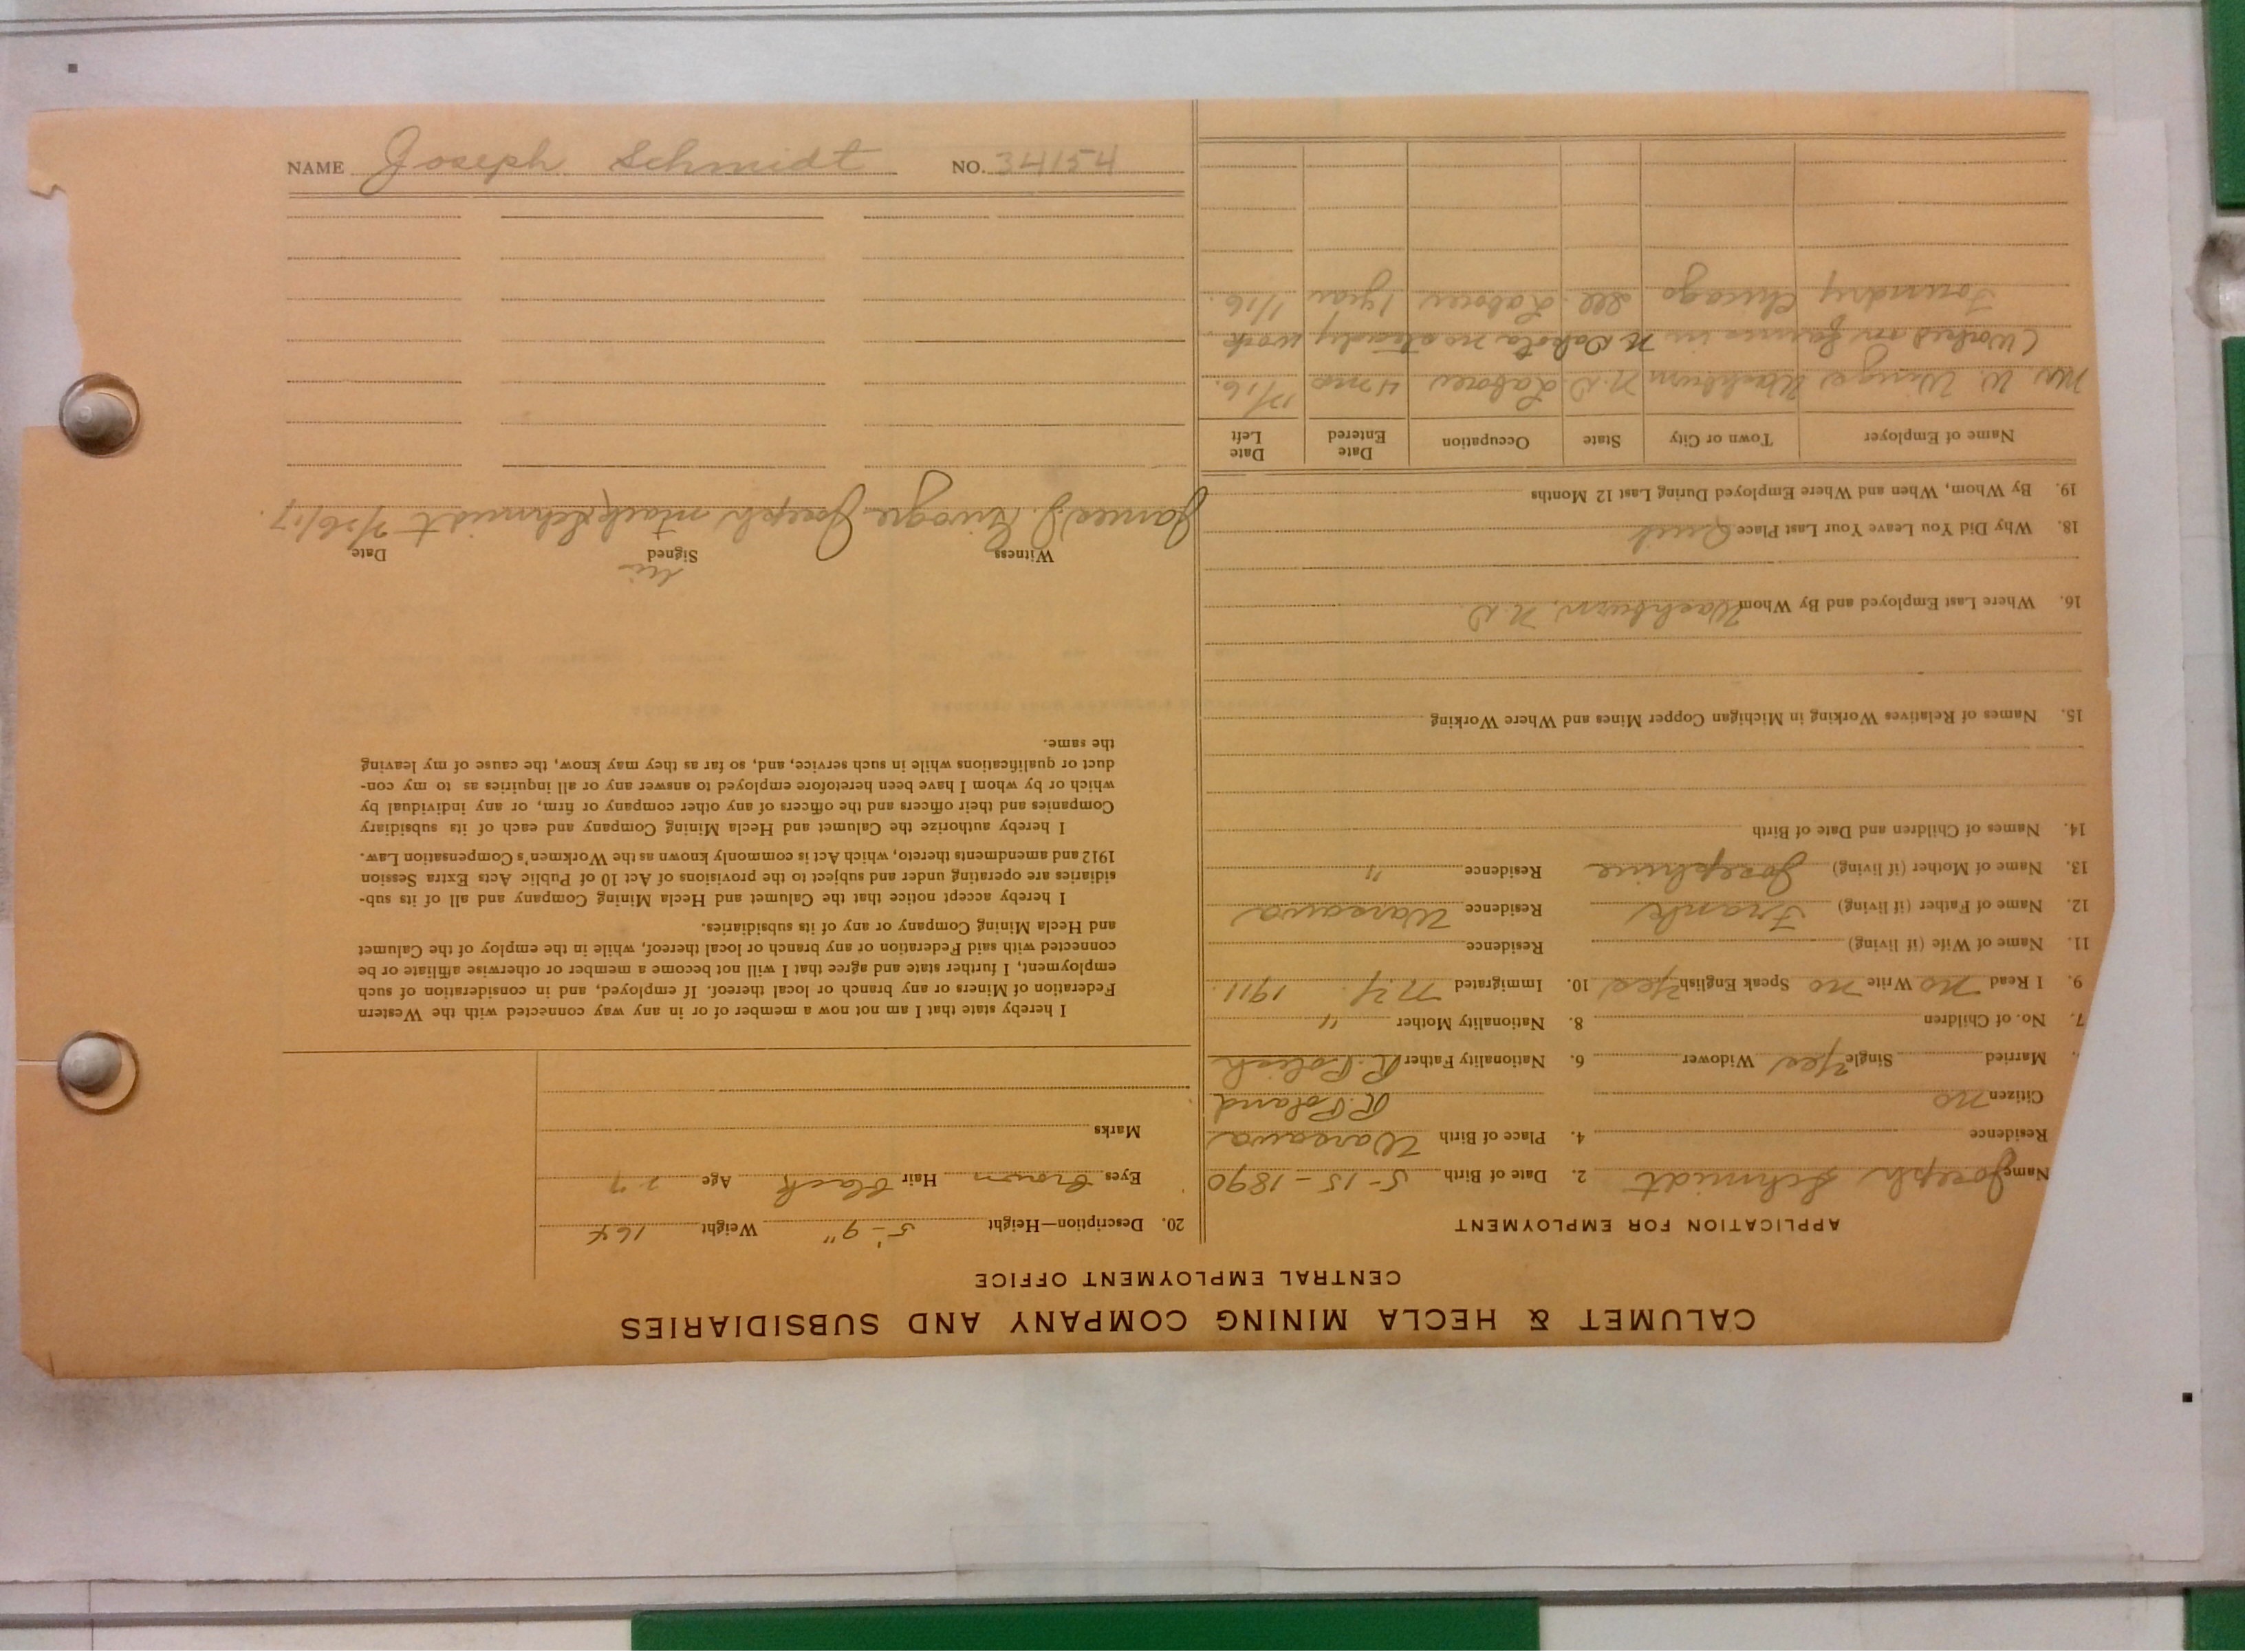 CALUMET & HECLA MINING COMPANY AND SUBSIDIARIES
CENTRAL EMPLOYMENT OFFICE
APPLICATION FOR EMPLOYMENT
Name Joseph Schmidt 2. Date of Birth 5-15-1890
Residence 4. Place of Birth Warsawa
Citizen no R. Poland
Married Single Yes Widower 6. Nationality Father R. Polish
7. No. of Children 8. Nationality Mother "
9. I Read no Write no Speak English Yes 10. Immigrated N.Y. 1911.
11. Name of Wife (if living) Residence
12. Name of Father (if living) Frank Residence Warsawa
13. Name of Mother (if living) Josephine Residence "
14. Names of Children and Date of Birth
15. Names of Relatives Working in Michigan Copper Mines and Where Working
16. Where Last Employed and By Whom Washburn, N.D.
18. Why Did You Leave Your Last Place Quit
19. By Whom, When and Where Employed During Last 12 Months
Name of Employer Town or City State Occupation Date Entered Date Left
W. Washburn N.D. Laborer 4 mos 12/16.
(Worked on farms in N Dakota no steady work.
Foundry Chicago Ill. Laborer 1 year 1/16.
20. Description—Height 5'-9" Weight 164
Eyes Brown Hair black Age 27
Marks
I hereby state that I am not now a member of or in any way connected with the Western
Federation of Miners or any branch or local thereof. If employed, and in consideration of such
employment, I further state and agree that I will not become a member or otherwise affiliate or be
connected with said Federation or any branch or local thereof, while in the employ of the Calumet
and Hecla Mining Company or any of its subsidiaries.
I hereby accept notice that the Calumet and Hecla Mining Company and all of its sub-
sidiaries are operating under and subject to the provisions of Act 10 of Public Acts Extra Session
1912 and amendments thereto, which Act is commonly known as the Workmen's Compensation Law.
I hereby authorize the Calumet and Hecla Mining Company and each of its subsidiary
Companies and their officers and the officers of any other company or firm, or any individual by
which or by whom I have been heretofore employed to answer any or all inquiries as to my con-
duct or qualifications while in such service, and, so far as they may know, the cause of my leaving
the same.
his
Witness Signed Date
James J. Joseph mark Schmidt 7/26/17.
NAME Joseph Schmidt NO. 34154